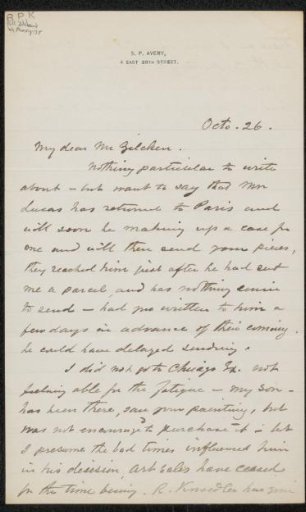 B.P.K
S. P. AVERY,
4 EAST 38TH STREET.
Octo. 26.
My dear Mr Zilcken.
Nothing particular to write
about – but want to say that Mr
Lucas has returned to Paris and
will soon be making up a case for
me and will then send your pieces,
they reached him just after he had sent
me a parcel, and has nothing
to send – had you written to him a
few days in advance of their coming
he could have delayed sending.
I did not go to Chicago Ex. not
feeling able for the fatigue – my Son
has been there, saw your painting, but
was not encouraged to purchase it – but
I presume the bad times influenced him
in his decision, art sales have ceased
for the time being. R. Knoedler has